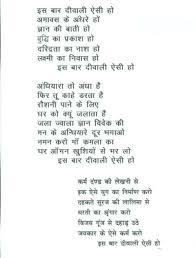 इस बार दीवाली ऐसी हो
अमावस के अंधेरे हों
ज्ञान की बाती हो
बुद्धि का प्रकाश हो
दरिद्रता का नाश हो
लक्ष्मी का निवास हो
इस बार दीवाली ऐसी हो
अंधियारा तो अंधा है
फिर तू काहे डरता है
रौशनी पाने के लिए
घर को क्यूं जलाता है
जला ज्वाला ज्ञान विवेक की
मन के अन्धियारे दूर भगाओ
नमन करो माँ कमला का
घर आँगन खुशियों से भर लो
इस बार दीवाली ऐसी हो
कर्म दण्ड की लेखनी से
इक ऐसे युग का निर्माण करो
दहकते सूरज की लालिमा से
धरती का श्रृंगार करो
विजय गूंज से दहाड़ उठे
जयकार के ऐसे कर्म करो
इस बार दीवाली ऐसी हो